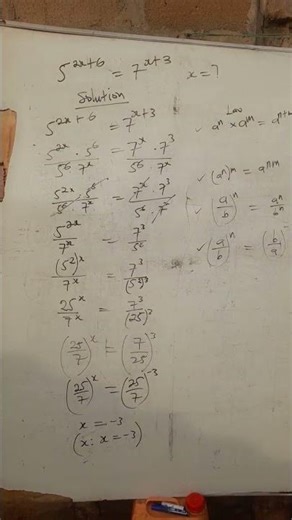 5^{2x+6} = 7^{x+3} x = ?
Solution
5^{2x+6} = 7^{x+3}
\frac{5^{2x} \cdot 5^6}{5^6 \cdot 7^x} = \frac{7^x \cdot 7^3}{5^6 \cdot 7^x}
\frac{5^{2x} \cdot 5^6}{5^6 \cdot 7^x} = \frac{7^x \cdot 7^3}{5^6 \cdot 7^x}
\frac{5^{2x}}{7^x} = \frac{7^3}{5^6}
\frac{(5^2)^x}{7^x} = \frac{7^3}{(5^2)^3}
\frac{25^x}{7^x} = \frac{7^3}{(25)^3}
(\frac{25}{7})^x = (\frac{7}{25})^3
(\frac{25}{7})^x = (\frac{25}{7})^{-3}
x = -3
(x: x = -3)
Law
✓ a^n × a^m = a^{n+m}
✓ (a^n)^m = a^{nm}
✓ (\frac{a}{b})^n = \frac{a^n}{b^n}
✓ (\frac{a}{b})^n = (\frac{b}{a})^-